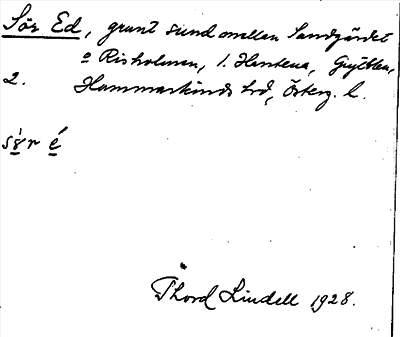 Sör Ed, grunt sund mellan Sandgärdet
o Risholmen, l. Hestena, Gryt sn,
2. Hammarkinds hd, Österg. l.
sör é
Thord Lindell 1928.